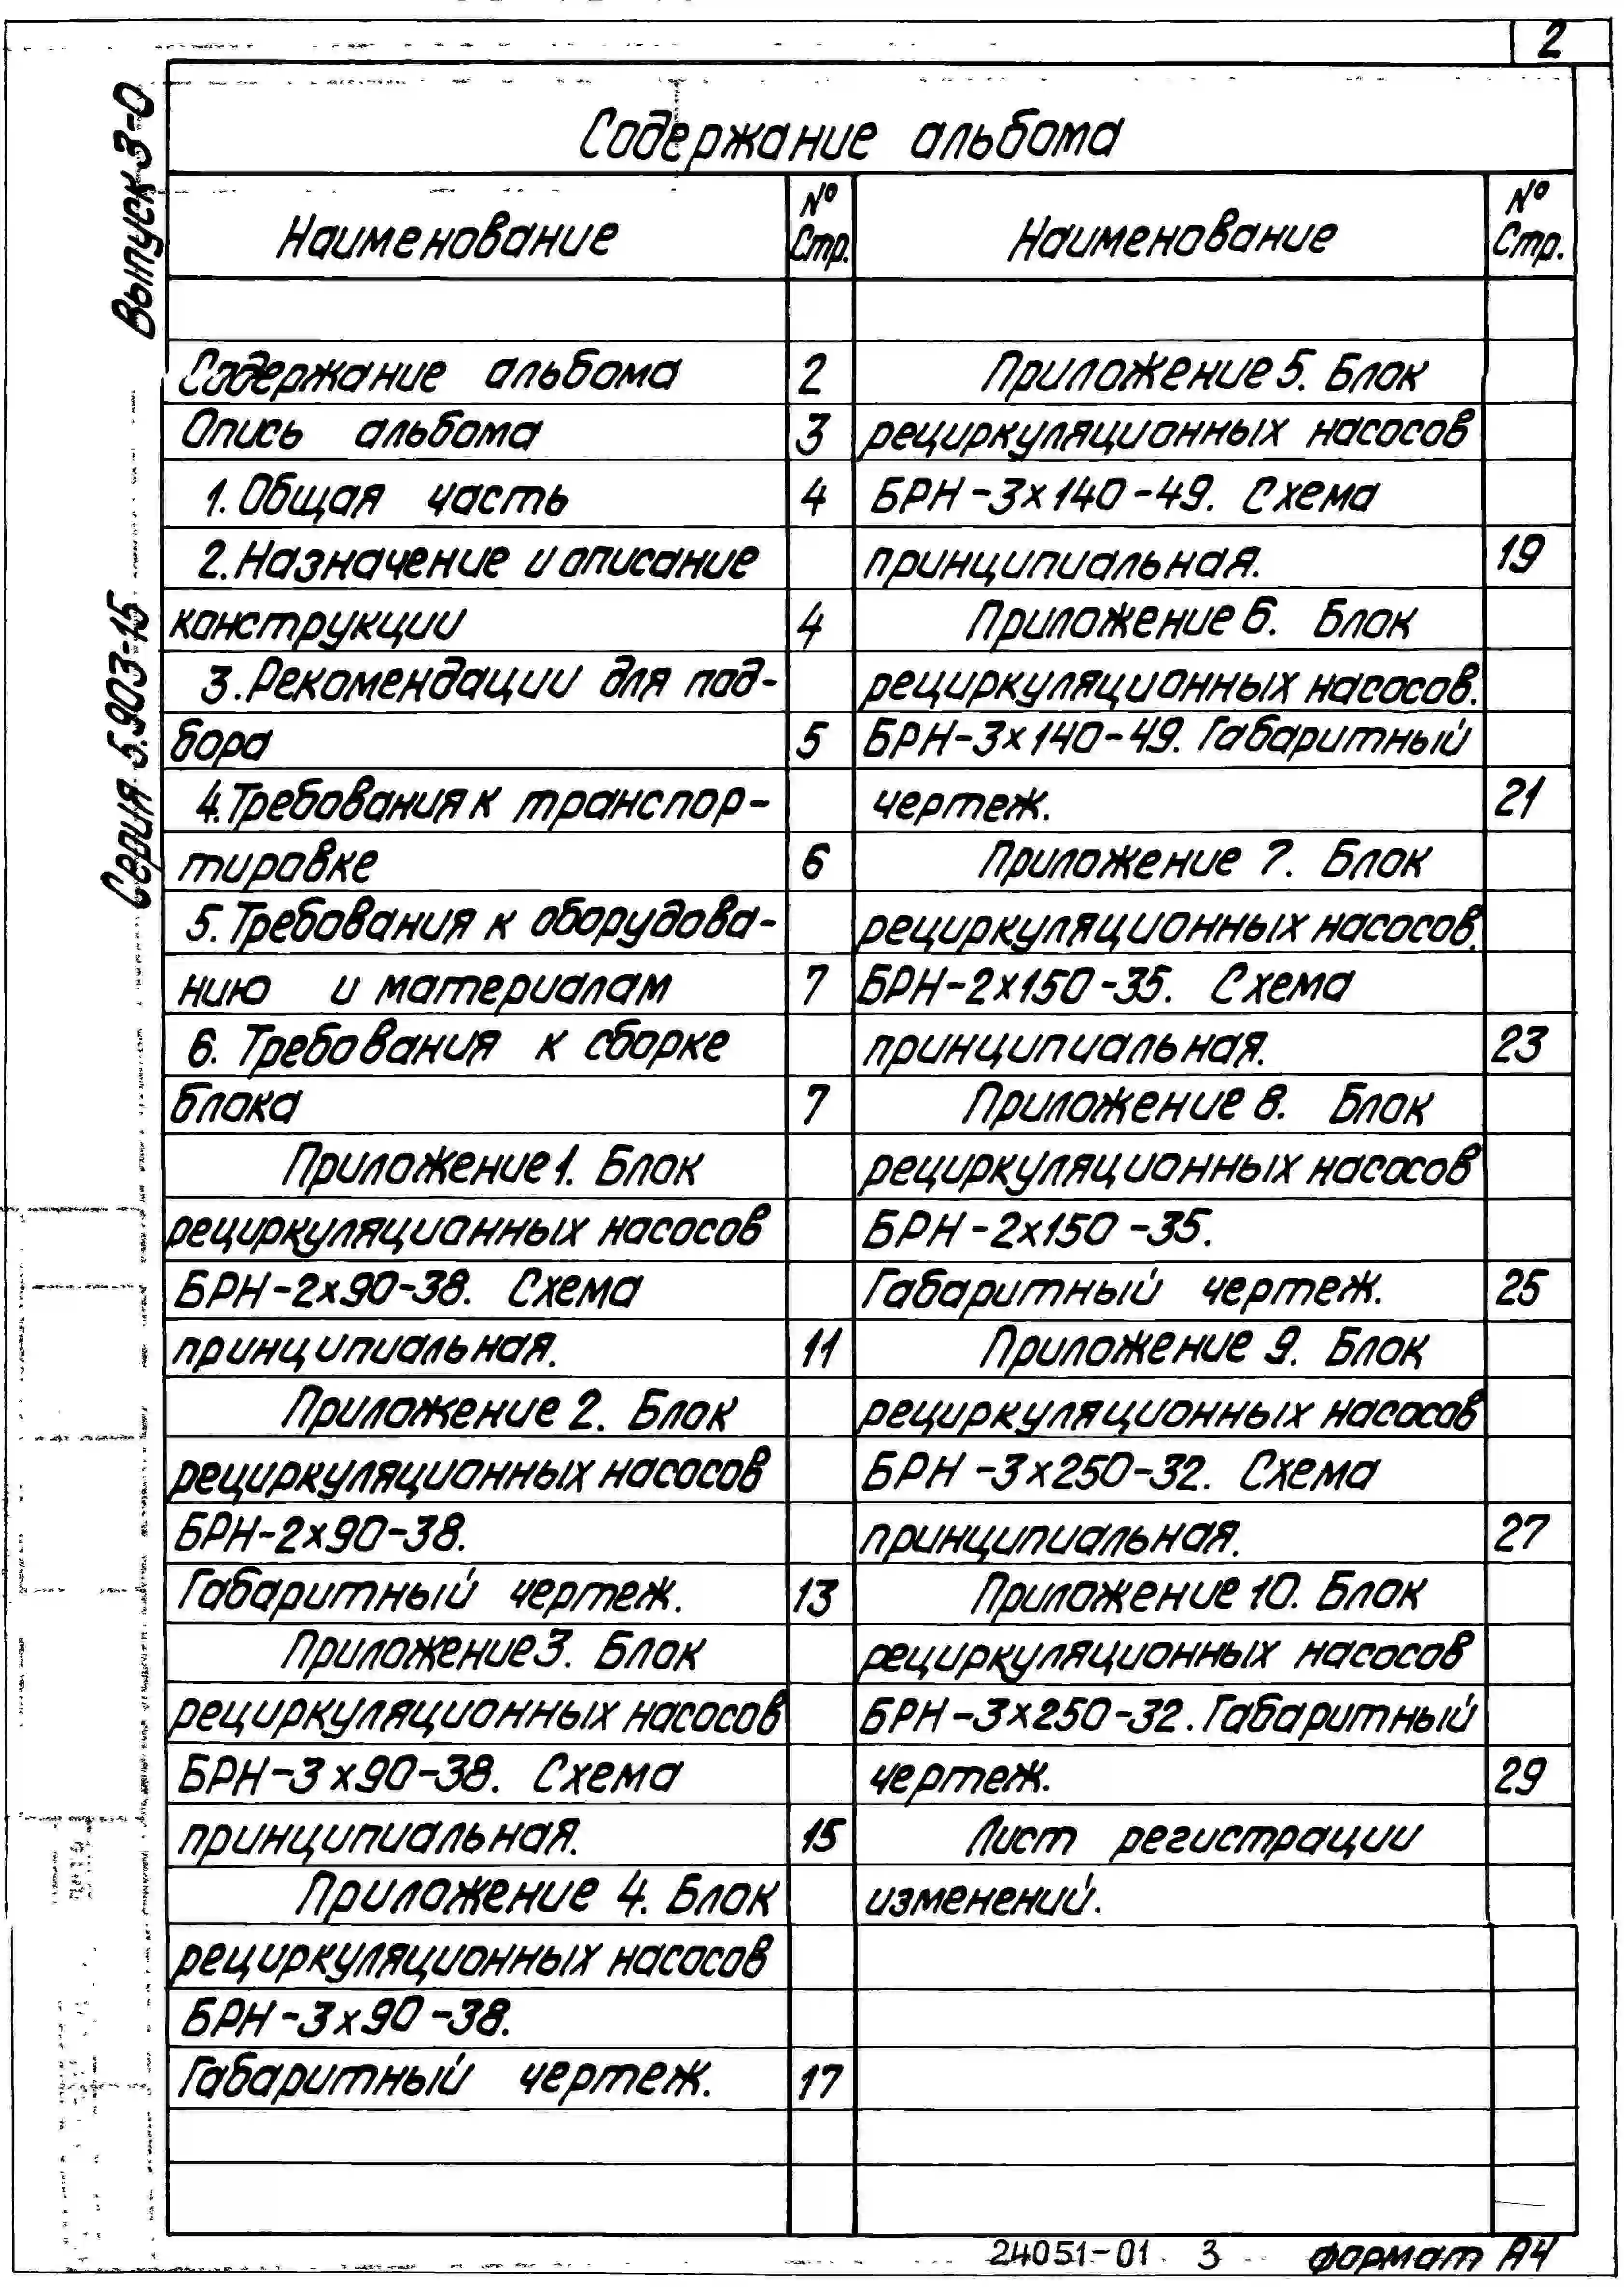 2
Выпуск 3-0
Серия 5.903-15
Содержание альбома
Наименование
№
Стр.
Содержание альбома 2
Опись альбома 3
1. Общая часть 4
2. Назначение и описание
конструкции 4
3. Рекомендации для под-
бора 5
4. Требования к транспор-
тировке 6
5. Требования к оборудова-
нию и материалам 7
6. Требования к сборке
блока 7
Приложение 1. Блок
рециркуляционных насосов
БРН-2х90-38. Схема
принципиальная. 11
Приложение 2. Блок
рециркуляционных насосов
БРН-2х90-38.
Габаритный чертеж. 13
Приложение 3. Блок
рециркуляционных насосов
БРН-3х90-38. Схема
принципиальная. 15
Приложение 4. Блок
рециркуляционных насосов
БРН-3х90-38.
Габаритный чертеж. 17
Наименование
№
Стр.
Приложение 5. Блок
рециркуляционных насосов
БРН-3х140-49. Схема
принципиальная. 19
Приложение 6. Блок
рециркуляционных насосов.
БРН-3х140-49. Габаритный
чертеж. 21
Приложение 7. Блок
рециркуляционных насосов.
БРН-2х150-35. Схема
принципиальная. 23
Приложение 8. Блок
рециркуляционных насосов
БРН-2х150-35.
Габаритный чертеж. 25
Приложение 9. Блок
рециркуляционных насосов
БРН-3х250-32. Схема
принципиальная. 27
Приложение 10. Блок
рециркуляционных насосов
БРН-3х250-32. Габаритный
чертеж. 29
Лист регистрации
изменений.
24051-01 3 формат А4